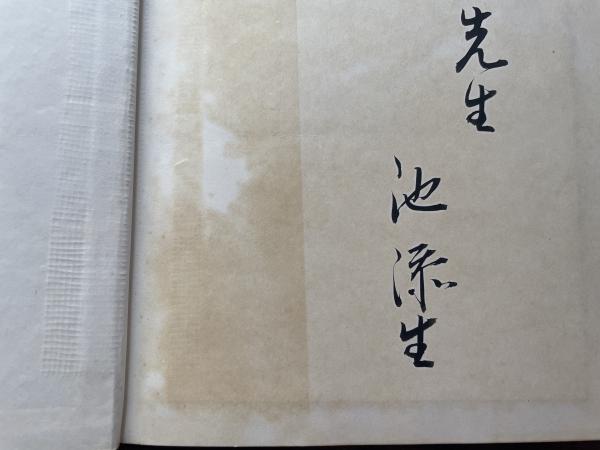 先生
池添生